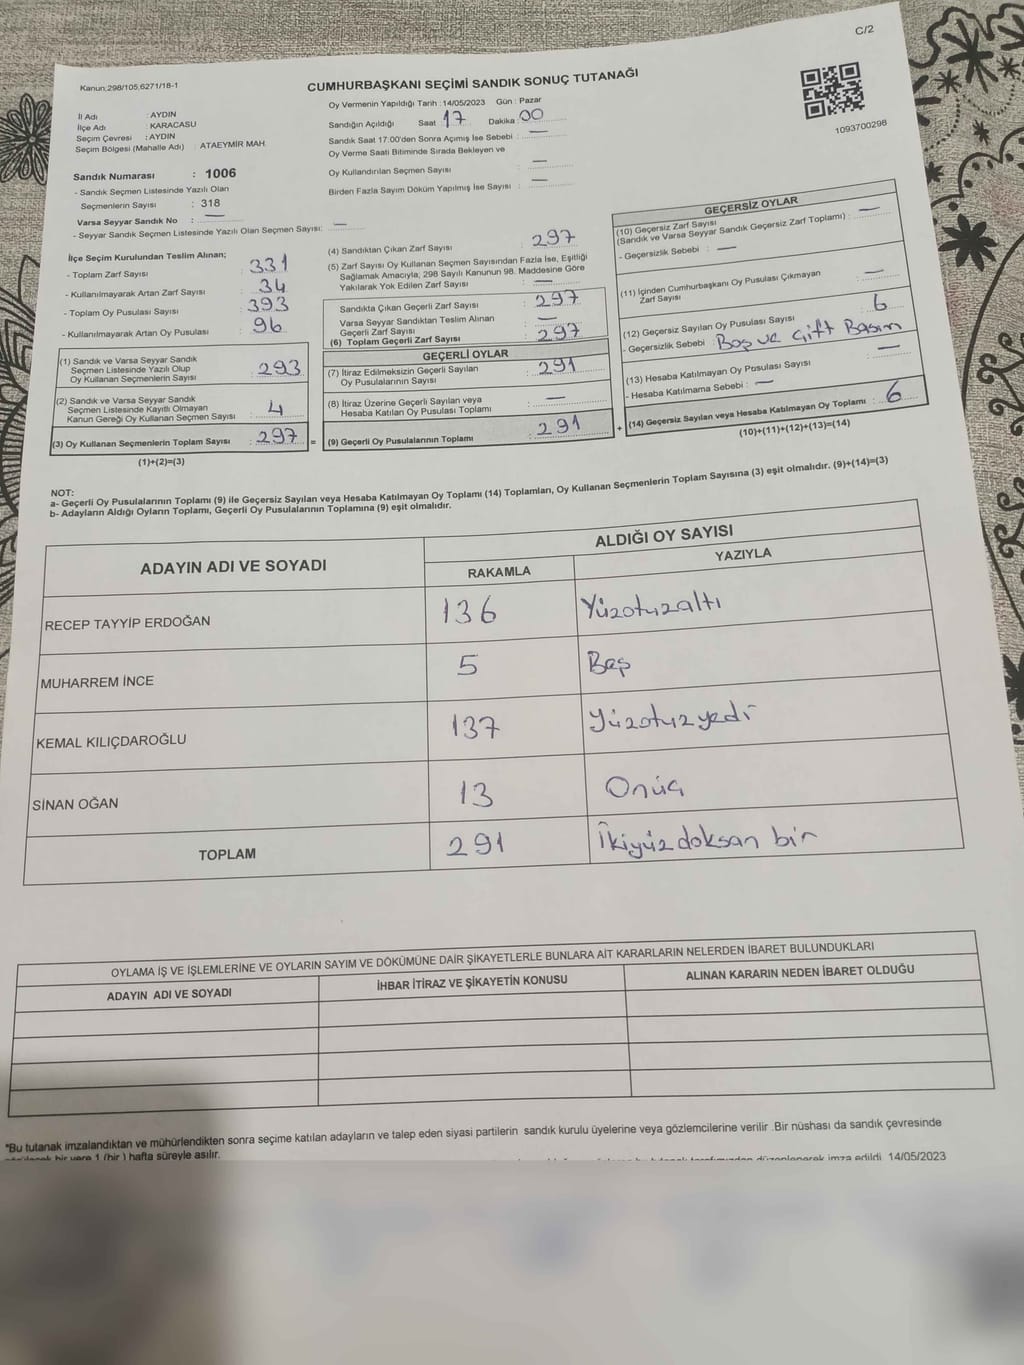 C/2
Kanun;298/105,6271/18-1
CUMHURBAŞKANI SEÇİMİ SANDIK SONUÇ TUTANAĞI
1093700298
İl Adı : AYDIN
İlçe Adı : KARACASU
Seçim Çevresi : AYDIN
Seçim Bölgesi (Mahalle Adı) : ATAEYMİR MAH.
Oy Vermenin Yapıldığı Tarih : 14/05/2023 Gün : Pazar
Sandığın Açıldığı Saat 17 Dakika : 00
Sandık Saat 17:00'den Sonra Açımış İse Sebebi : —
Oy Verme Saati Bitiminde Sırada Bekleyen ve
Oy Kullandırılan Seçmen Sayısı : —
Birden Fazla Sayım Döküm Yapılmış İse Sayısı : —
Sandık Numarası : 1006
- Sandık Seçmen Listesinde Yazılı Olan
Seçmenlerin Sayısı : 318
Varsa Seyyar Sandık No : —
- Seyyar Sandık Seçmen Listesinde Yazılı Olan Seçmen Sayısı: —
İlçe Seçim Kurulundan Teslim Alınan;
- Toplam Zarf Sayısı : 331
- Kullanılmayarak Artan Zarf Sayısı : 34
- Toplam Oy Pusulası Sayısı : 393
- Kullanılmayarak Artan Oy Pusulası : 96
(1) Sandık ve Varsa Seyyar Sandık
Seçmen Listesinde Yazılı Olup
Oy Kullanan Seçmenlerin Sayısı : 293
(2) Sandık ve Varsa Seyyar Sandık
Seçmen Listesinde Kayıtlı Olmayan
Kanun Gereği Oy Kullanan Seçmen Sayısı : 4
(3) Oy Kullanan Seçmenlerin Toplam Sayısı : 297 =
(1)+(2)=(3)
(4) Sandıktan Çıkan Zarf Sayısı : 297
(5) Zarf Sayısı Oy Kullanan Seçmen Sayısından Fazla İse, Eşitliği
Sağlamak Amacıyla, 298 Sayılı Kanunun 98. Maddesine Göre
Yakılarak Yok Edilen Zarf Sayısı : —
Sandıkta Çıkan Geçerli Zarf Sayısı : 297
Varsa Seyyar Sandıktan Teslim Alınan
Geçerli Zarf Sayısı : —
(6) Toplam Geçerli Zarf Sayısı : 297
GEÇERLİ OYLAR
(7) İtiraz Edilmeksizin Geçerli Sayılan
Oy Pusulalarının Sayısı : 291
(8) İtiraz Üzerine Geçerli Sayılan veya
Hesaba Katılan Oy Pusulası Toplamı : —
(9) Geçerli Oy Pusulalarının Toplamı : 291 +
GEÇERSİZ OYLAR
(10) Geçersiz Zarf Sayısı
(Sandık ve Varsa Seyyar Sandık Geçersiz Zarf Toplamı) : —
- Geçersizlik Sebebi : —
(11) İçinden Cumhurbaşkanı Oy Pusulası Çıkmayan
Zarf Sayısı : —
(12) Geçersiz Sayılan Oy Pusulası Sayısı : 6
- Geçersizlik Sebebi : Boş ve Çift Basım
(13) Hesaba Katılmayan Oy Pusulası Sayısı : —
- Hesaba Katılmama Sebebi : —
(14) Geçersiz Sayılan veya Hesaba Katılmayan Oy Toplamı : 6
(10)+(11)+(12)+(13)=(14)
NOT:
a- Geçerli Oy Pusulalarının Toplamı (9) ile Geçersiz Sayılan veya Hesaba Katılmayan Oy Toplamı (14) Toplamları, Oy Kullanan Seçmenlerin Toplam Sayısına (3) eşit olmalıdır. (9)+(14)=(3)
b- Adayların Aldığı Oyların Toplamı, Geçerli Oy Pusulalarının Toplamına (9) eşit olmalıdır.
ADAYIN ADI VE SOYADI ALDIĞI OY SAYISI
RAKAMLA YAZIYLA
RECEP TAYYİP ERDOĞAN 136 Yüzotuzaltı
MUHARREM İNCE 5 Beş
KEMAL KILIÇDAROĞLU 137 Yüzotuzyedi
SİNAN OĞAN 13 Onüç
TOPLAM 291 İkiyüz doksan bir
OYLAMA İŞ VE İŞLEMLERİNE VE OYLARIN SAYIM VE DÖKÜMÜNE DAİR ŞİKAYETLERLE BUNLARA AİT KARARLARIN NELERDEN İBARET BULUNDUKLARI
ADAYIN ADI VE SOYADI İHBAR İTİRAZ VE ŞİKAYETİN KONUSU ALINAN KARARIN NEDEN İBARET OLDUĞU
*Bu tutanak imzalandıktan ve mühürlendikten sonra seçime katılan adayların ve talep eden siyasi partilerin sandık kurulu üyelerine veya gözlemcilerine verilir .Bir nüshası da sandık çevresinde
bir yere 1 (bir ) hafta süreyle asılır.
düzenlenerek imza edildi. 14/05/2023